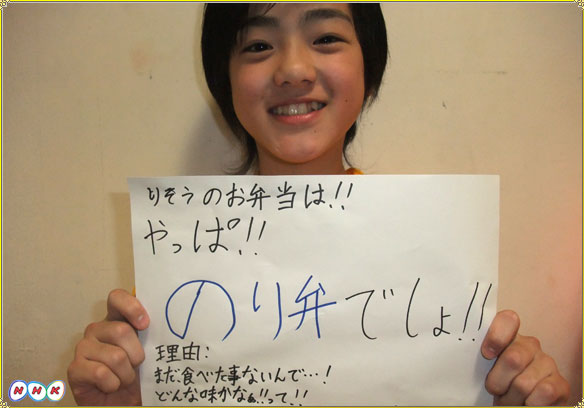 りそうのお弁当は!!
やっぱ!!
のり弁でしょ!!
理由:
まだ、食べた事ないんで…!
どんな味かなぁ!!って!!
NHK